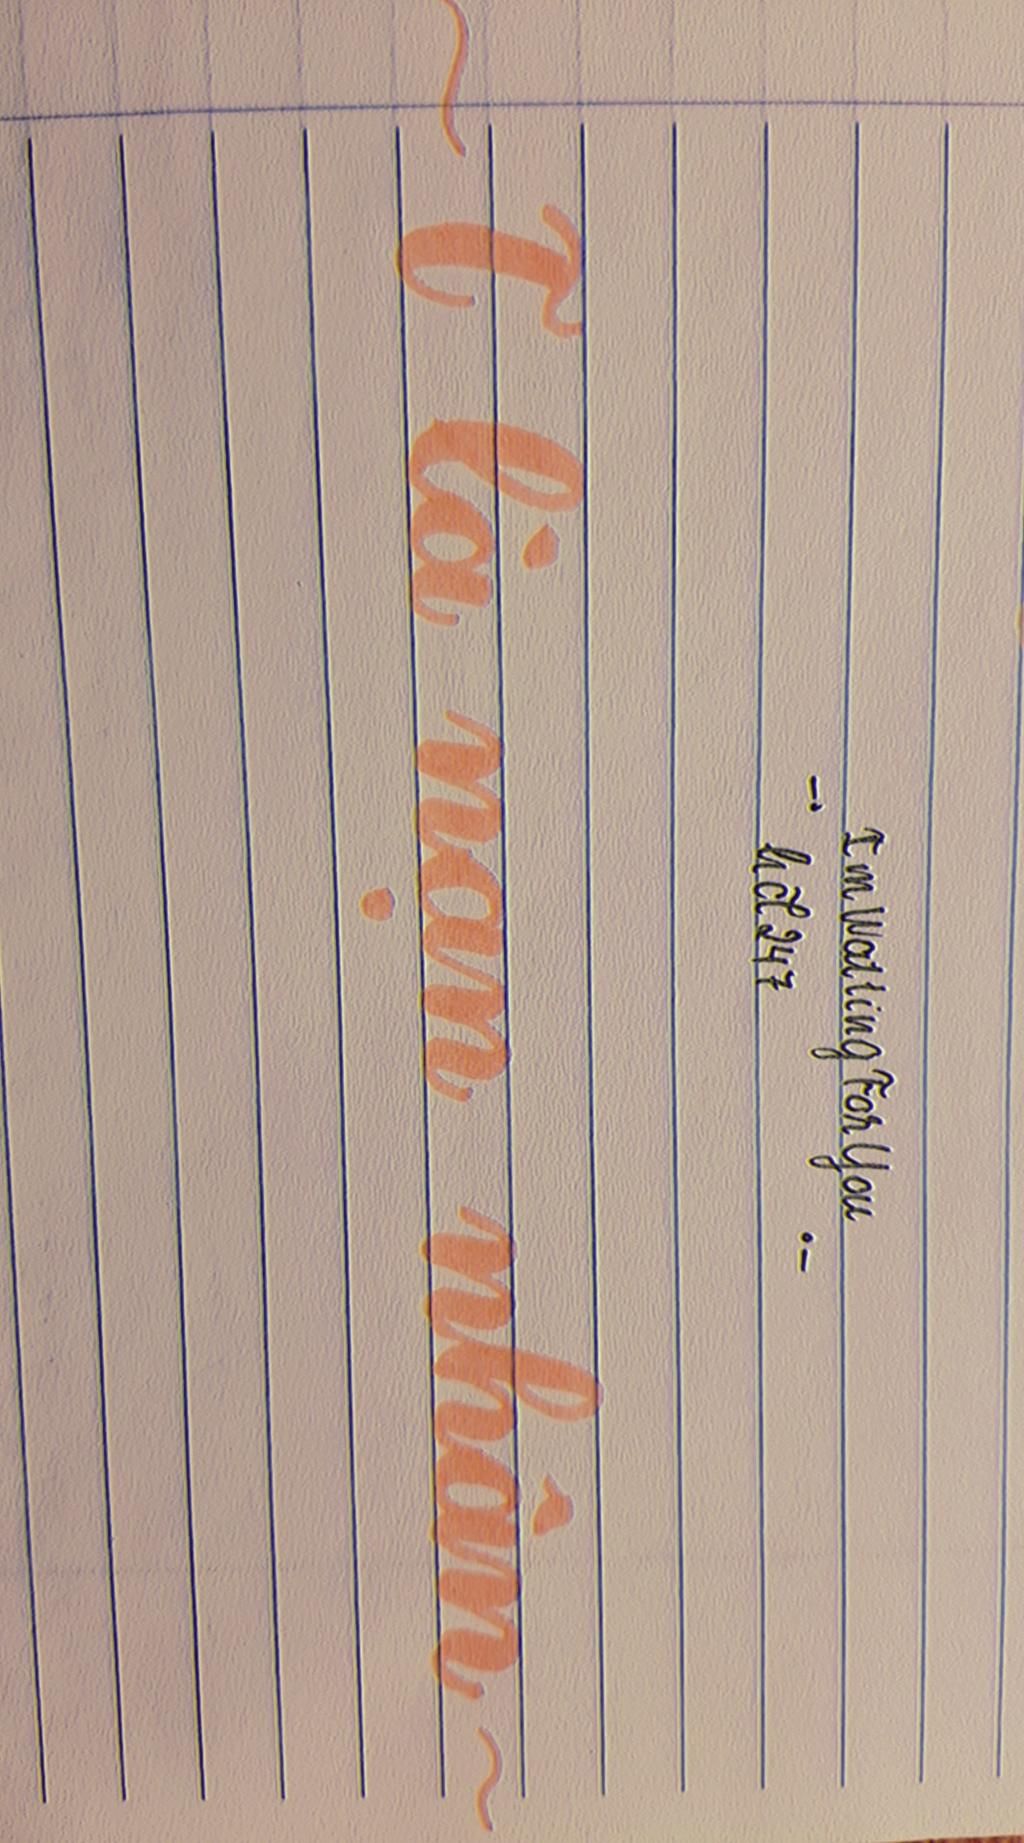 I'm Waiting For You
-. hcl247 .-
~ T là nạn nhân ~